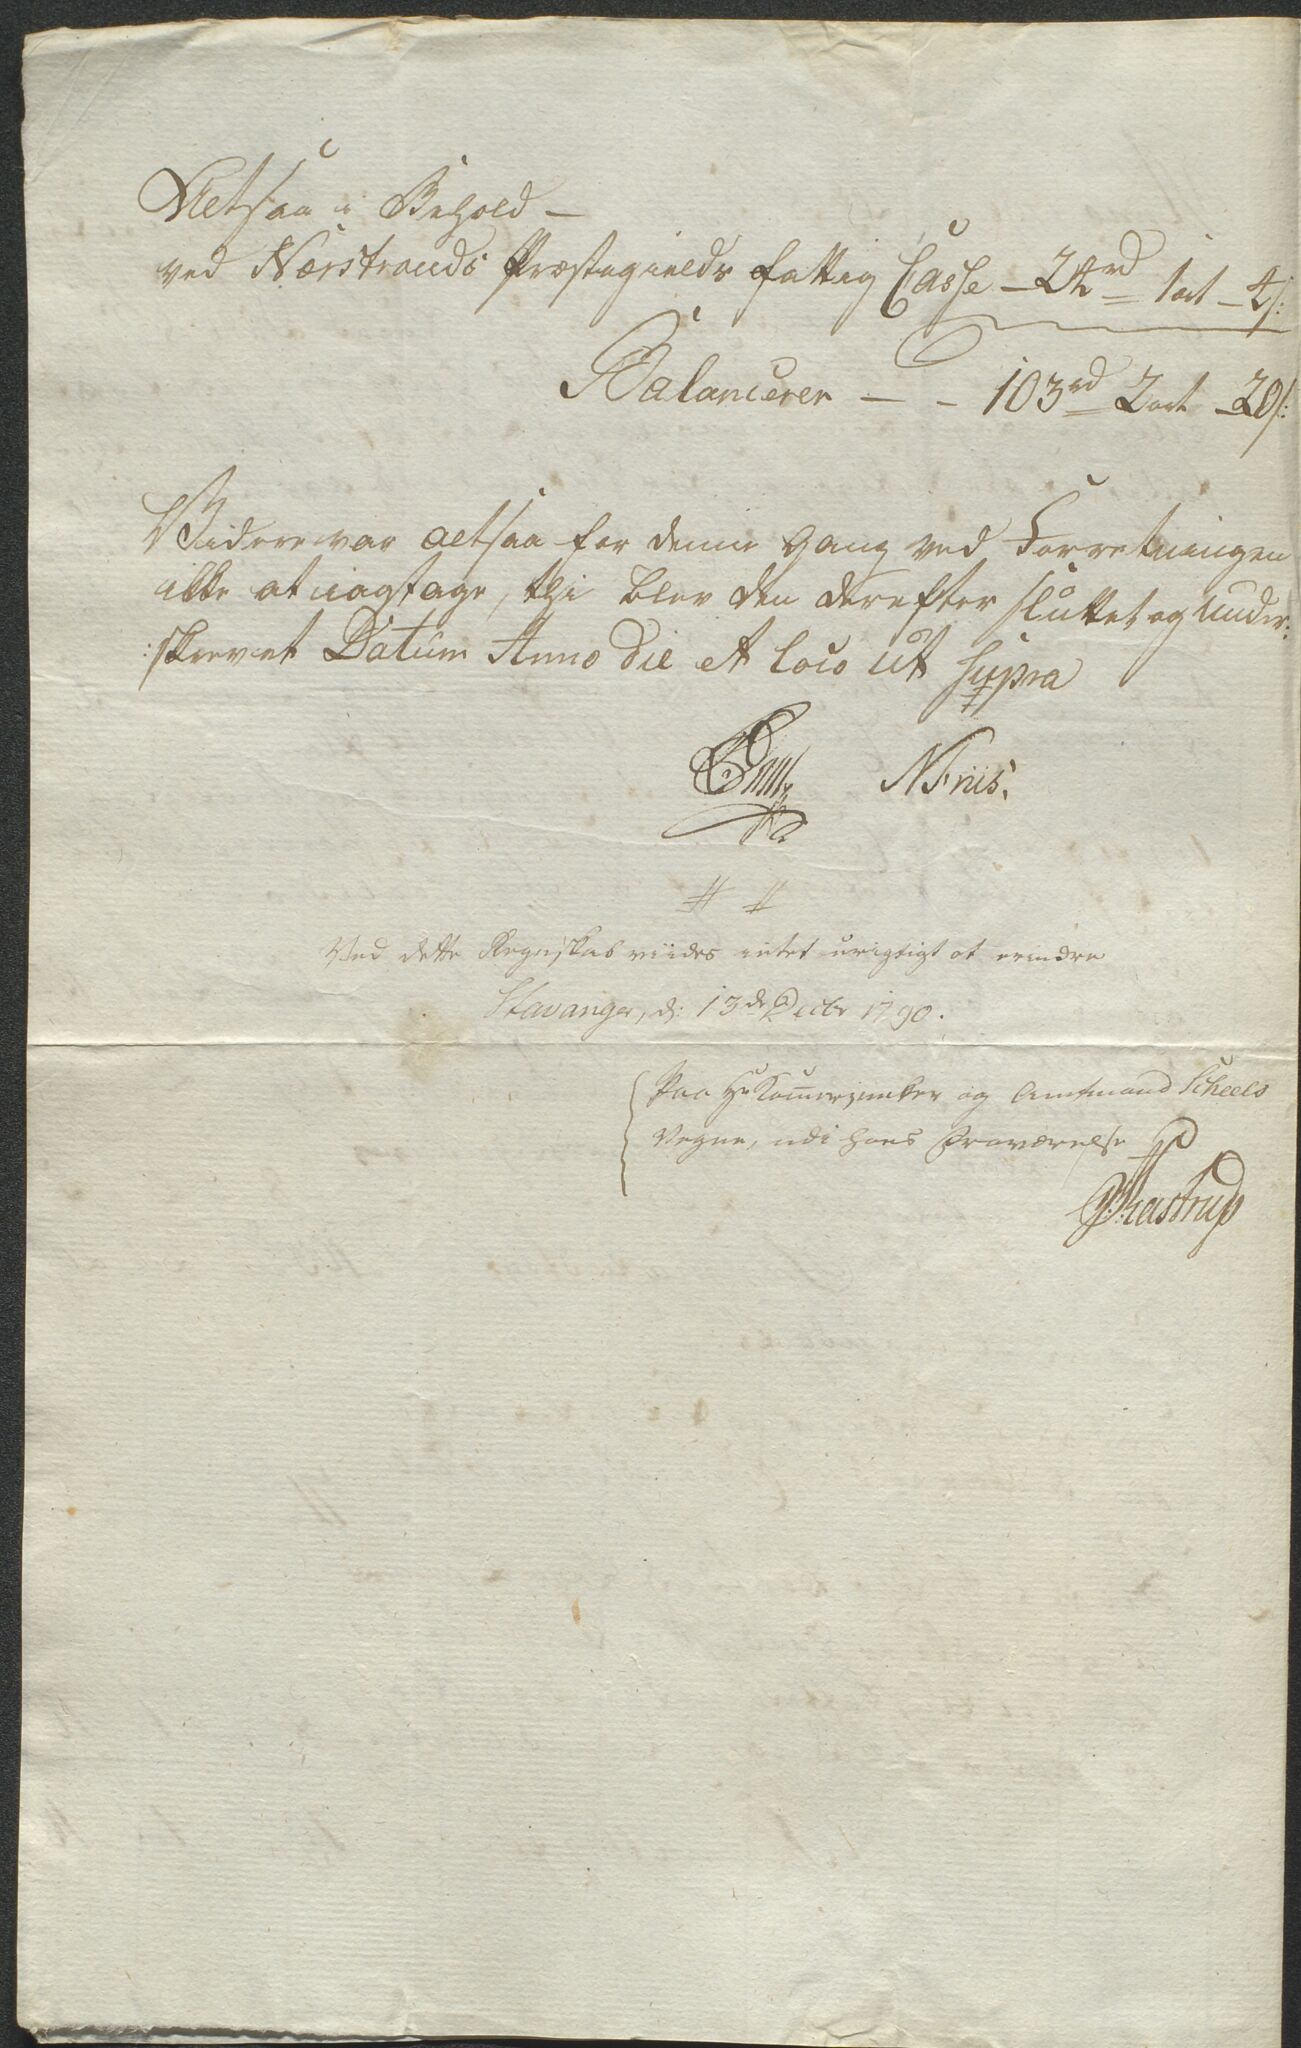 Altsaa i Behold –
ved Nærstrands Præstegields Fattig Casse – 24rd 1 ort – 4 s:
Balancerer – – 103rd 2 ort – 20 s:
Videre var altsaa for denne Gang ved Forretningen
ikke at iagtage, thi blev den derefter sluttet og under:
:skrevet Datum Anno Die et loco ut supra
N Friis.
Ved dette Regnskab viides intet urigtigt at erindre
Stavanger, d: 13de Decbr 1790.
Paa Hr Kammerjunker og Amtmand Scheels
Vegne, udi hans Fraværelse